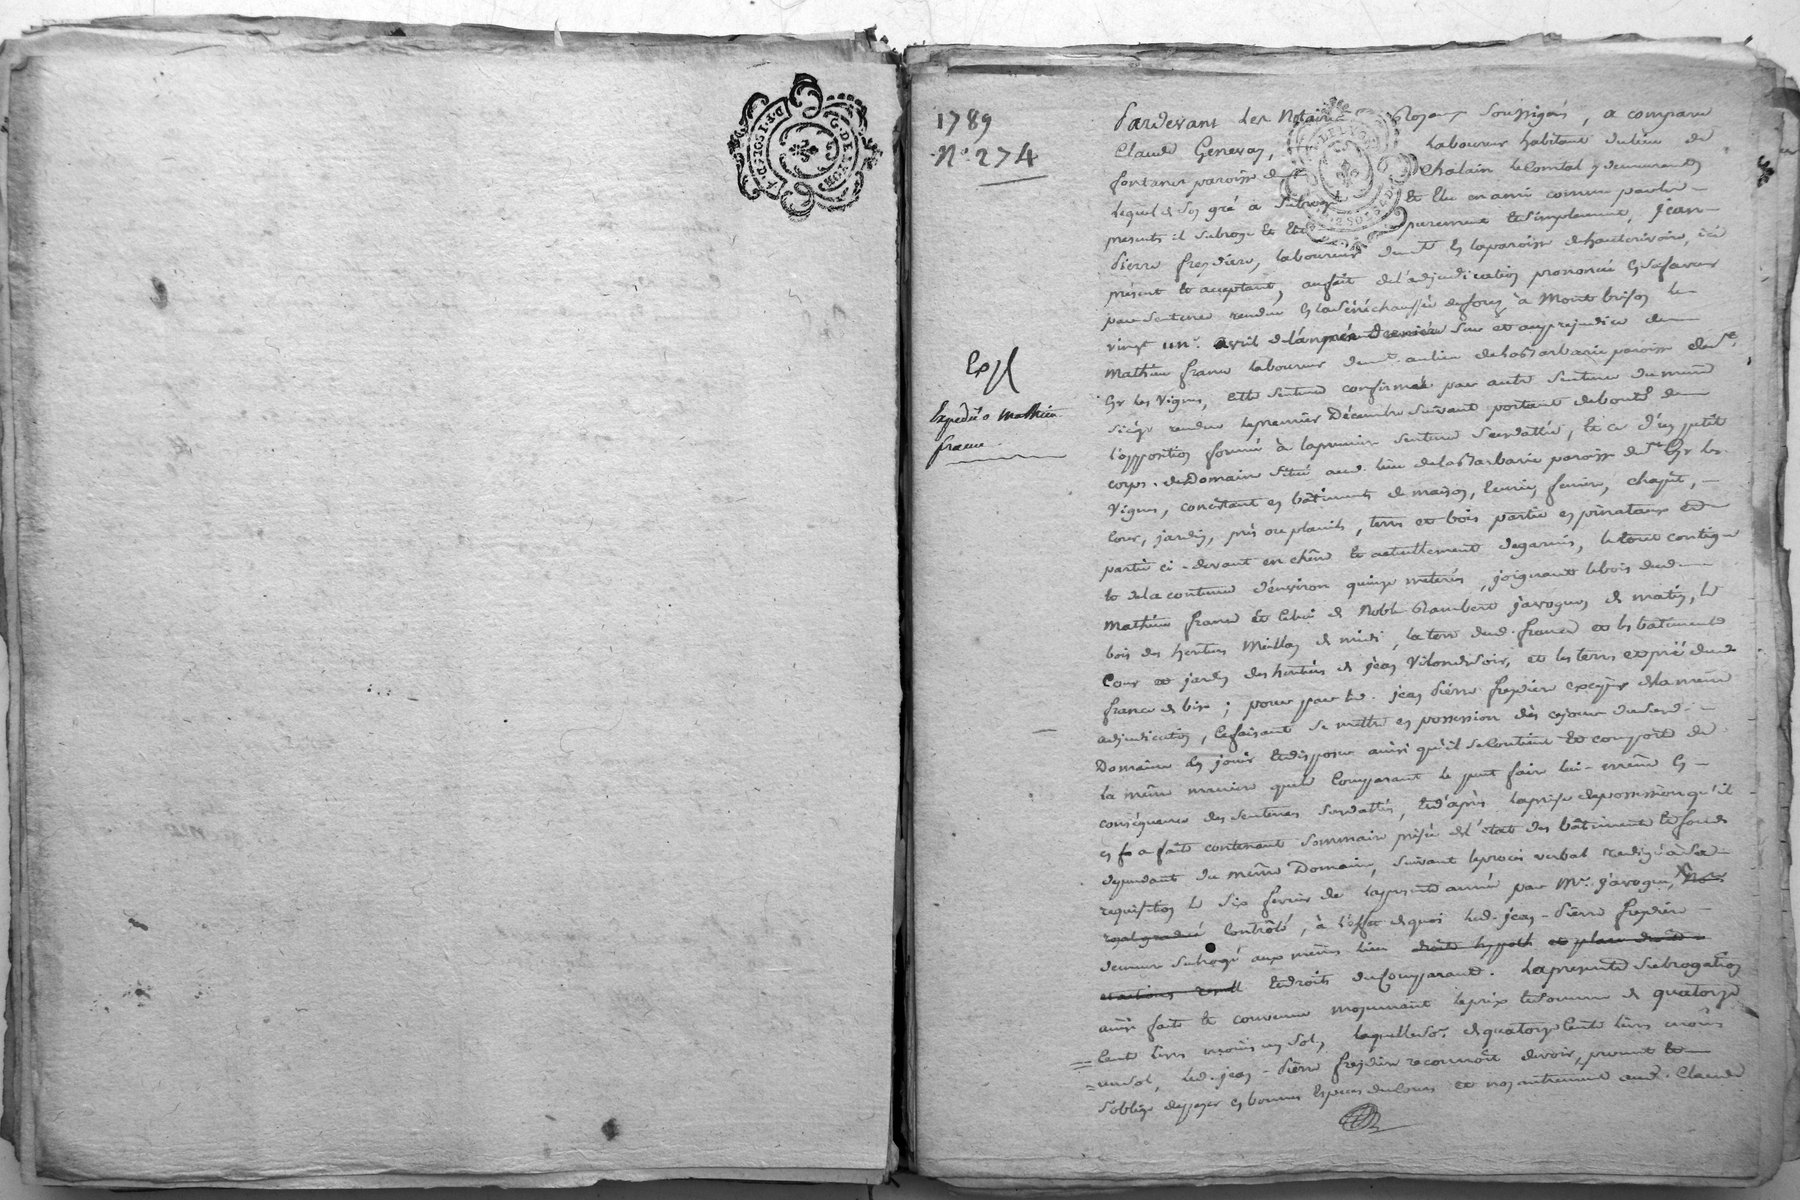 G. DE LYON
1789
N.o 274
Expédié a Mathieu
france
Pardevant les Notaires Royaux Soussignés, a comparu
Claude Genevay, laboureur habitant du lieu de
fontanes paroisse de Chalain le Comtal y demeurant
lequel de son gré a subrogé et élu en ami comme par les
presentes il subroge et élu purement et simplement, Jean
Pierre frejdiere, laboureur dem.t en la paroisse d'hauterivoire, ici
présent et acceptant, au fait de l'adjudication prononcée en sa faveur
par sentence rendue en la sénéchaussée de forez à Montbrison le
vingt un avril de l'année derniere sur et au préjudice de
Mathieu france laboureur dem.t au lieu de la Barbarie paroisse de S.t
Cyr les Vignes, cette sentence confirmée par autre sentence du même
siège rendue le premier Décembre suivant portant debouté de
l'opposition formée à la premiere sentence susdattée, et ce d'un petit
corps de Domaine situé aud. lieu de la Barbarie paroisse de S.t Cyr les
Vignes, consistant en bâtiments de maison, écurie, feniere, chapit,
cour, jardin, prés ou plants, terres et bois partie en pinateaux et
partie ci-devant en chêne et actuellement dégarnis, le tout contigu
et de la contenue d'environ quinze meterées, joignant le bois dud.
Mathieu france et celui de Noble Rambert javogues de matin, le
bois des heritiers Meillan de midi, la terre dud. france et les bâtiments
Cour et jardin des heritiers de jean Vilon de soir, et les terres et pré dud.
france de bise ; pour par led. jean Pierre frejdiere exciper de la même
adjudication, ce faisant se mettre en possession dès ce jour dud.
Domaine en jouir et disposer ainsi qu'il se contient et comporte de
la même maniere que le Comparant le peut faire lui-même en
conséquence des sentences susdattées, et d'après la prise de possession qu'il
en a fait contenant sommaire prisée de l'état des bâtiments et fonds
dépendant du même Domaine, suivant le procès verbal rédigé à sa
requisition le six fevrier de la présente année par M.e javogues, Not.e
royal gradué Contrôlé, à l'effet de quoi led. jean-Pierre frejdiere
demeure subrogé aux mêmes lieu droits hypoth et place droits
et actions et droits du Comparant. La presente subrogation
ainsi faite et convenue moyennant le prix et somme de quatorze
cent livres moins un sol, laquelle so.e de quatorze cent livres moins
un sol, led. jean-Pierre frejdiere reconnoît devoir, promet et
s'oblige de payer en bonnes Especes du cours et non autrement aud. Claude